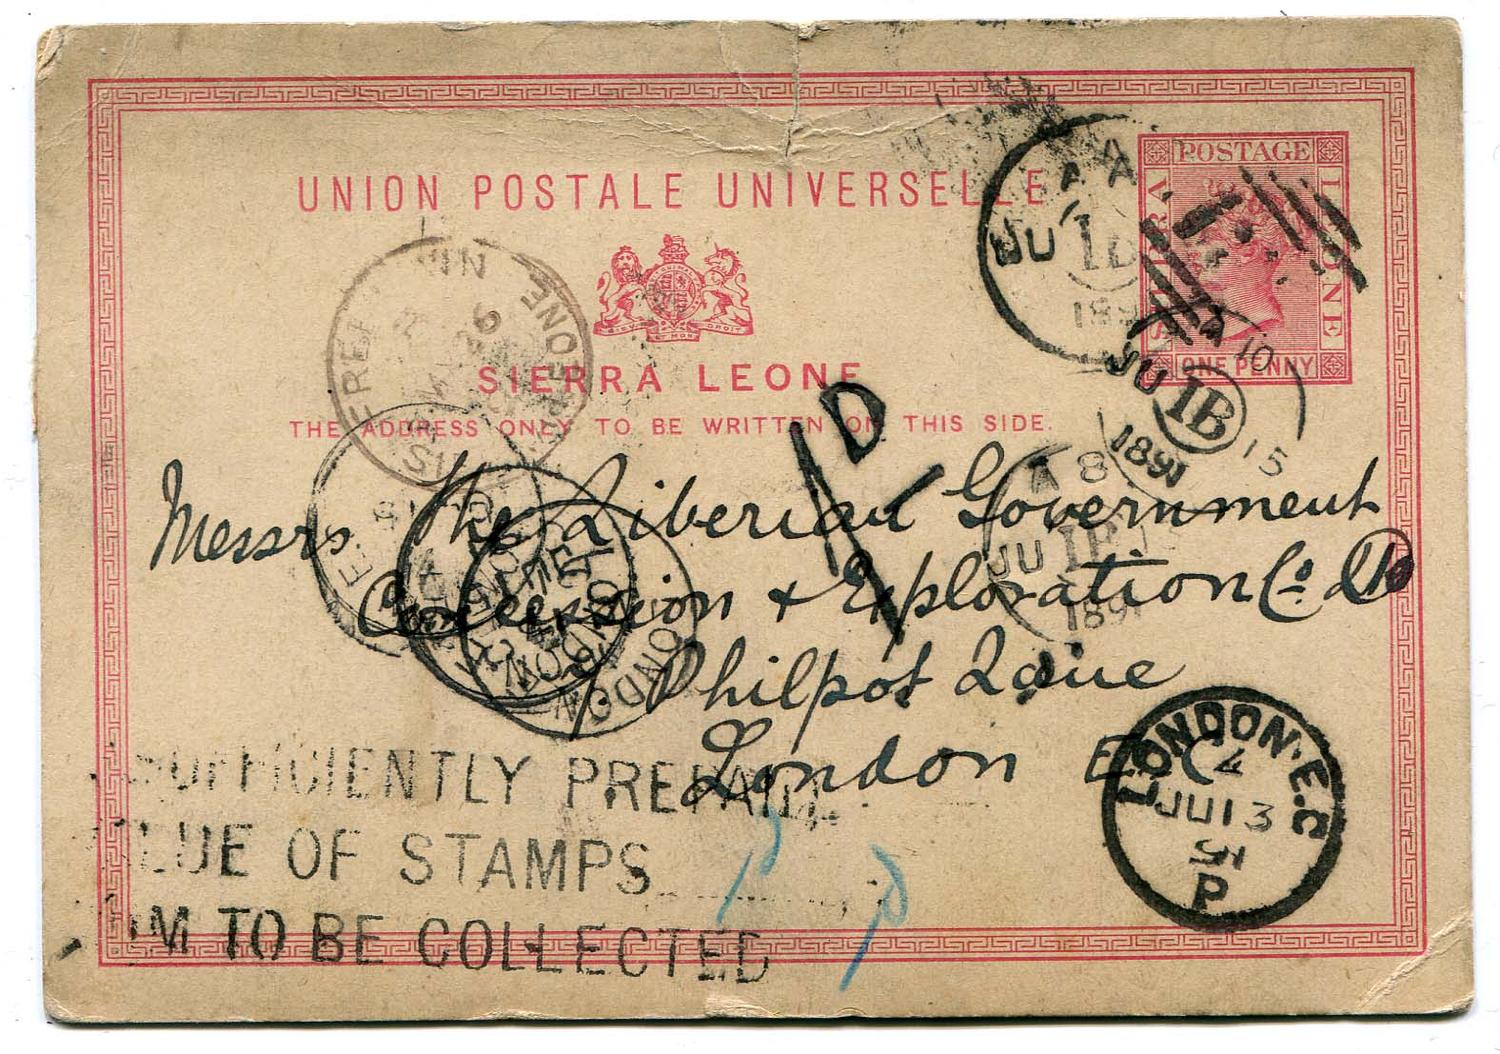 UNION POSTALE UNIVERSELLE
POSTAGE
SIERRA LEONE
ONE PENNY
SIERRA LEONE
THE ADDRESS ONLY TO BE WRITTEN ON THIS SIDE.
Messrs The Liberian Government
Concession & Exploration Co. Ld
Philpot Lane
London E C
1D
SUFFICIENTLY PREPAID.
VALUE OF STAMPS
SUM TO BE COLLECTED
JU 1B
1891
A 10
JU 1B 15
1891
A 8
JU
1891
LONDON·E.C
4
JU 13
91
P